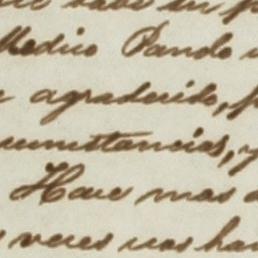 sabe su p
Medico Pando
agradecido, p
cunstancias, y
Hace mas d
veces nos ha